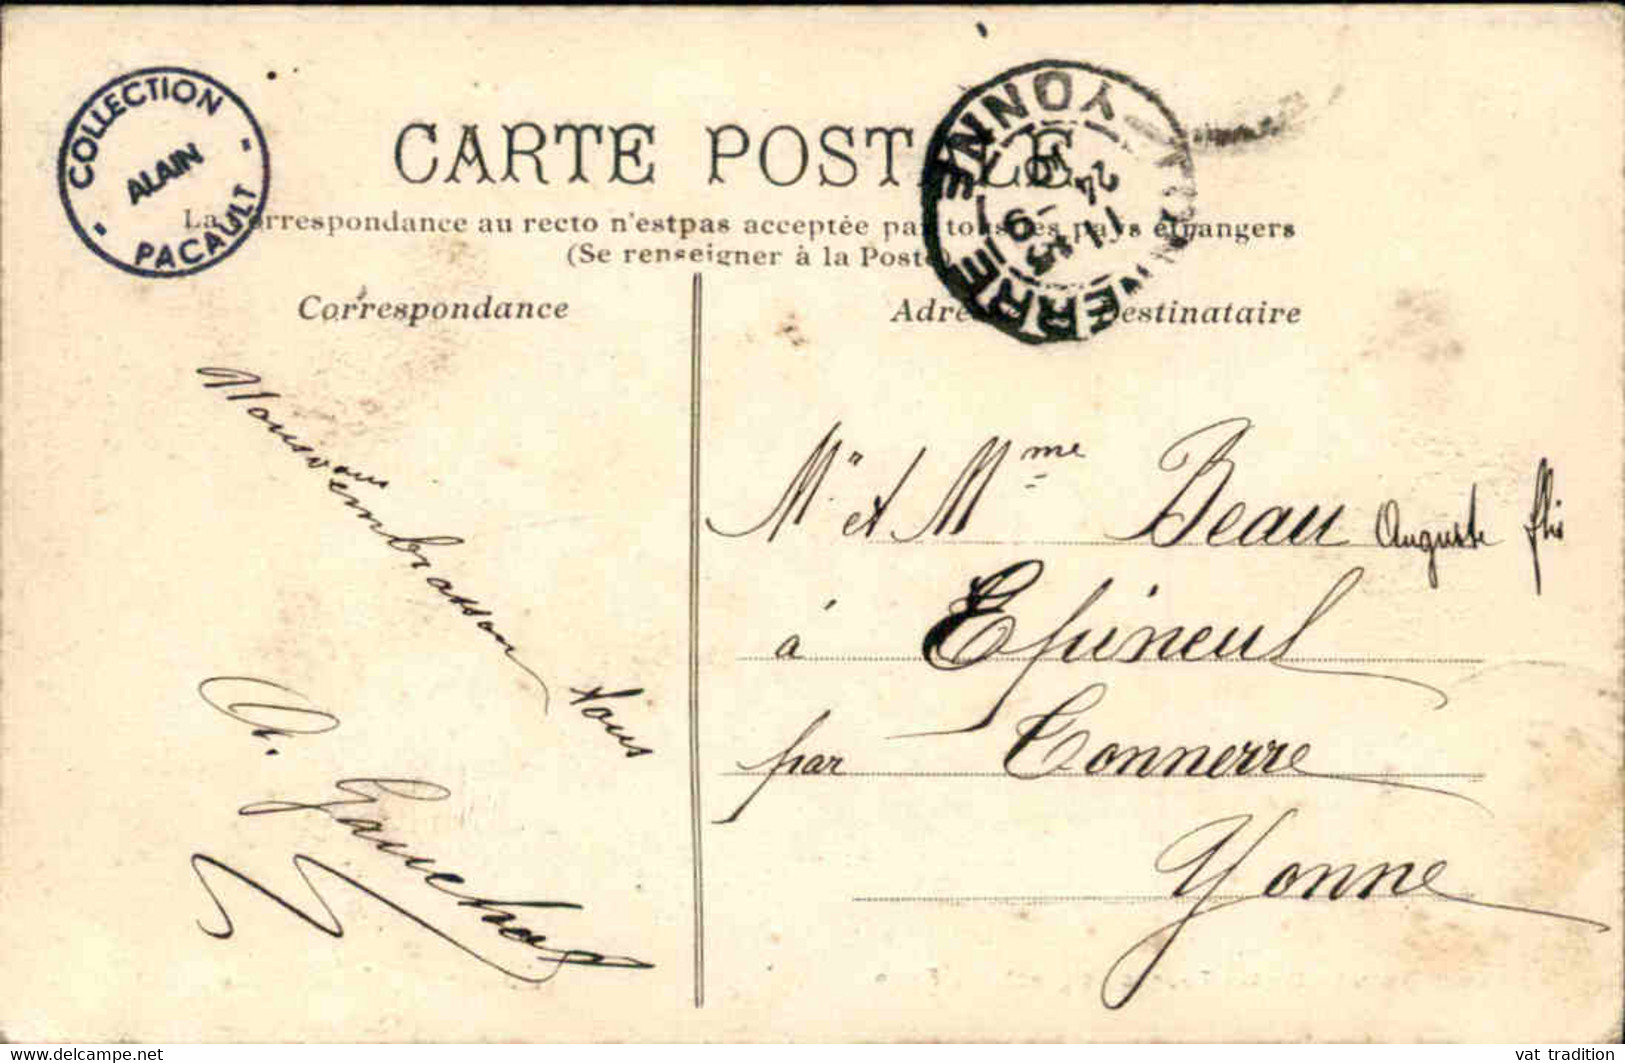 COLLECTION
ALAIN
PACAULT
CARTE POSTALE
La Correspondance au recto n'est pas acceptée par tous les pays étrangers
(Se renseigner à la Poste)
Correspondance
Adresse du Destinataire
YONNE
TONNERRE
Nous vous embrassons tous
A. Gauchot
Mr et Mme Beau Auguste fils
à Epineul
par Tonnerre
Yonne
delcampe.net
vat_tradition